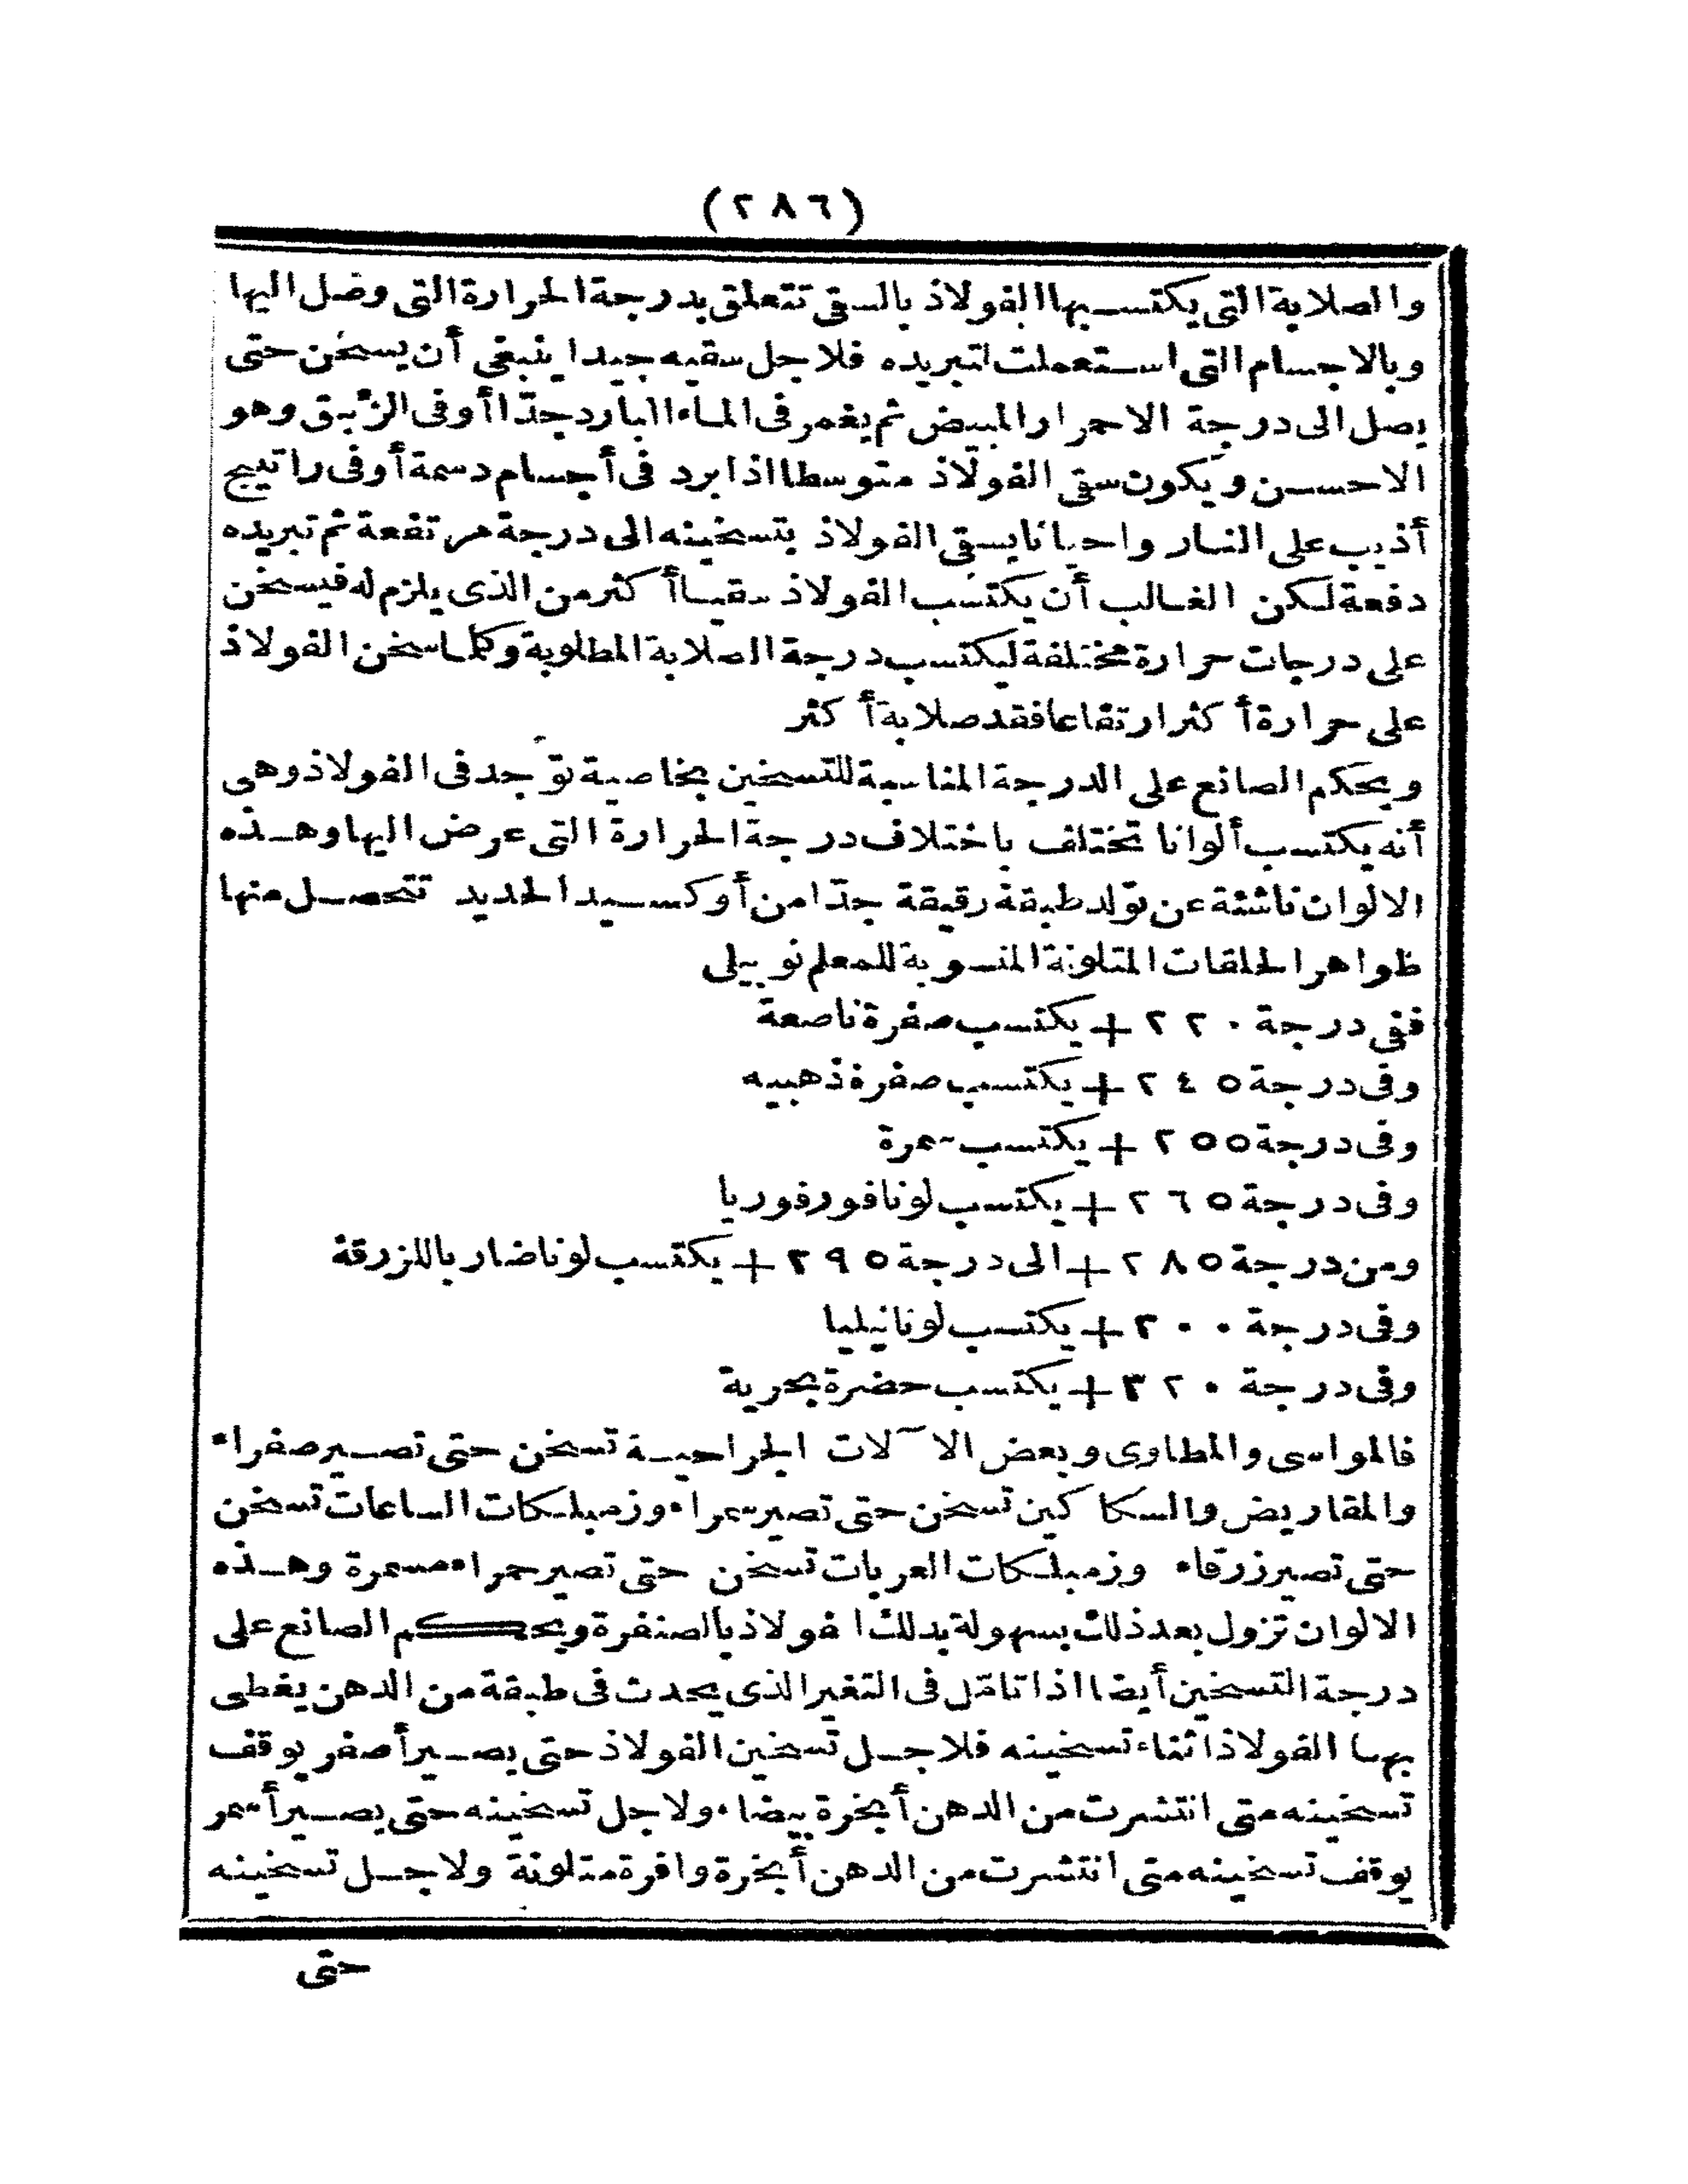 (٢٨٦)
والصلابة التى يكتسبها الفولاذ بالسقى تتعلق بدرجة الحرارة التى وصل اليها
وبالاجسام التى استعملت لتبريده فلاجل سقيه جيدا ينبغى أن يسخن حتى
يصل الى درجة الاحمرار المبيض ثم يغمر فى الماء البارد جدّا أو فى الزئبق وهو
الاحسن ويكون سقى الفولاذ متوسطا اذا برد فى أجسام دسمة أو فى راتينج
أذيب على النار واحيانا يسقى الفولاذ بتسخينه الى درجة مرتفعة ثم تبريده
دفعة لكن الغالب أن يكتسب الفولاذ سقيا أكثر من الذى يلزم له فيسخن
على درجات حرارة مختلفة ليكتسب درجة الصلابة المطلوبة وكلما سخن الفولاذ
على حرارة أكثر ارتفاعا فقد صلابة أكثر
ويحكم الصانع على الدرجة المناسبة للتسخين بخاصية توجد فى الفولاذ وهى
أنه يكتسب ألوانا تختلف باختلاف درجة الحرارة التى عرض اليها وهذه
الالوان ناشئة عن تولد طبقة رقيقة جدّا من أوكسيد الحديد تتحصل منها
ظواهر الحلقات المتلونة المنسوبة للمعلم نوبيلى
ففى درجة ٢٢٠ + يكتسب صفرة ناصعة
وفى درجة ٢٤٥ + يكتسب صفرة ذهبيه
وفى درجة ٢٥٥ + يكتسب سمرة
وفى درجة ٢٦٥ + يكتسب لونا فورفوريا
ومن درجة ٢٨٥ + الى درجة ٢٩٥ + يكتسب لونا ضاربا للزرقة
وفى درجة ٣٠٠ + يكتسب لونا نيليا
وفى درجة ٣٢٠ + يكتسب حضرة بحرية
فالمواسى والمطاوى وبعض الآلات الجراحية تسخن حتى تصير صفراء
والمقاريض والسكاكين تسخن حتى تصير سمراء وزمبلكات الساعات تسخن
حتى تصير زرقاء وزمبلكات العربات تسخن حتى تصير حمراء مسمرة وهذه
الالوان تزول بعد ذلك بسهولة بدلك الفولاذ بالصنفرة ويحكم الصانع على
درجة التسخين أيضا اذا تامّل فى التغير الذى يحدث فى طبقة من الدهن يغطى
بها الفولاذ اثناء تسخينه فلاجل تسخين الفولاذ حتى يصير أصفر يوقف
تسخينه متى انتشرت من الدهن أبخرة بيضاء ولاجل تسخينه حتى يصير أسمر
يوقف تسخينه متى انتشرت من الدهن أبخرة وافرة متلونة ولاجل تسخينه
حتى